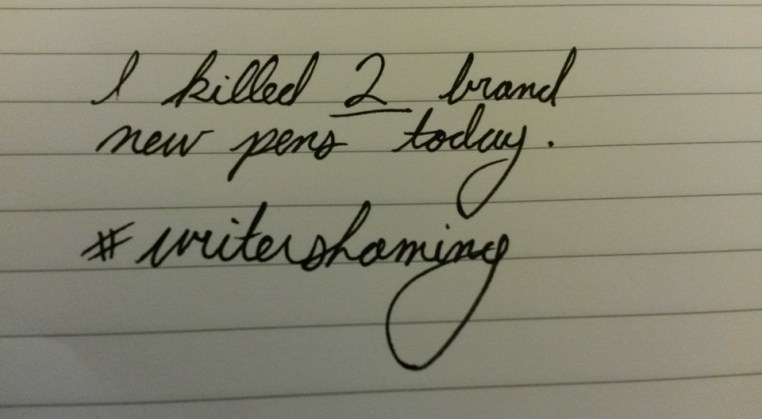 I killed 2 brand
new pens today.
#writershaming